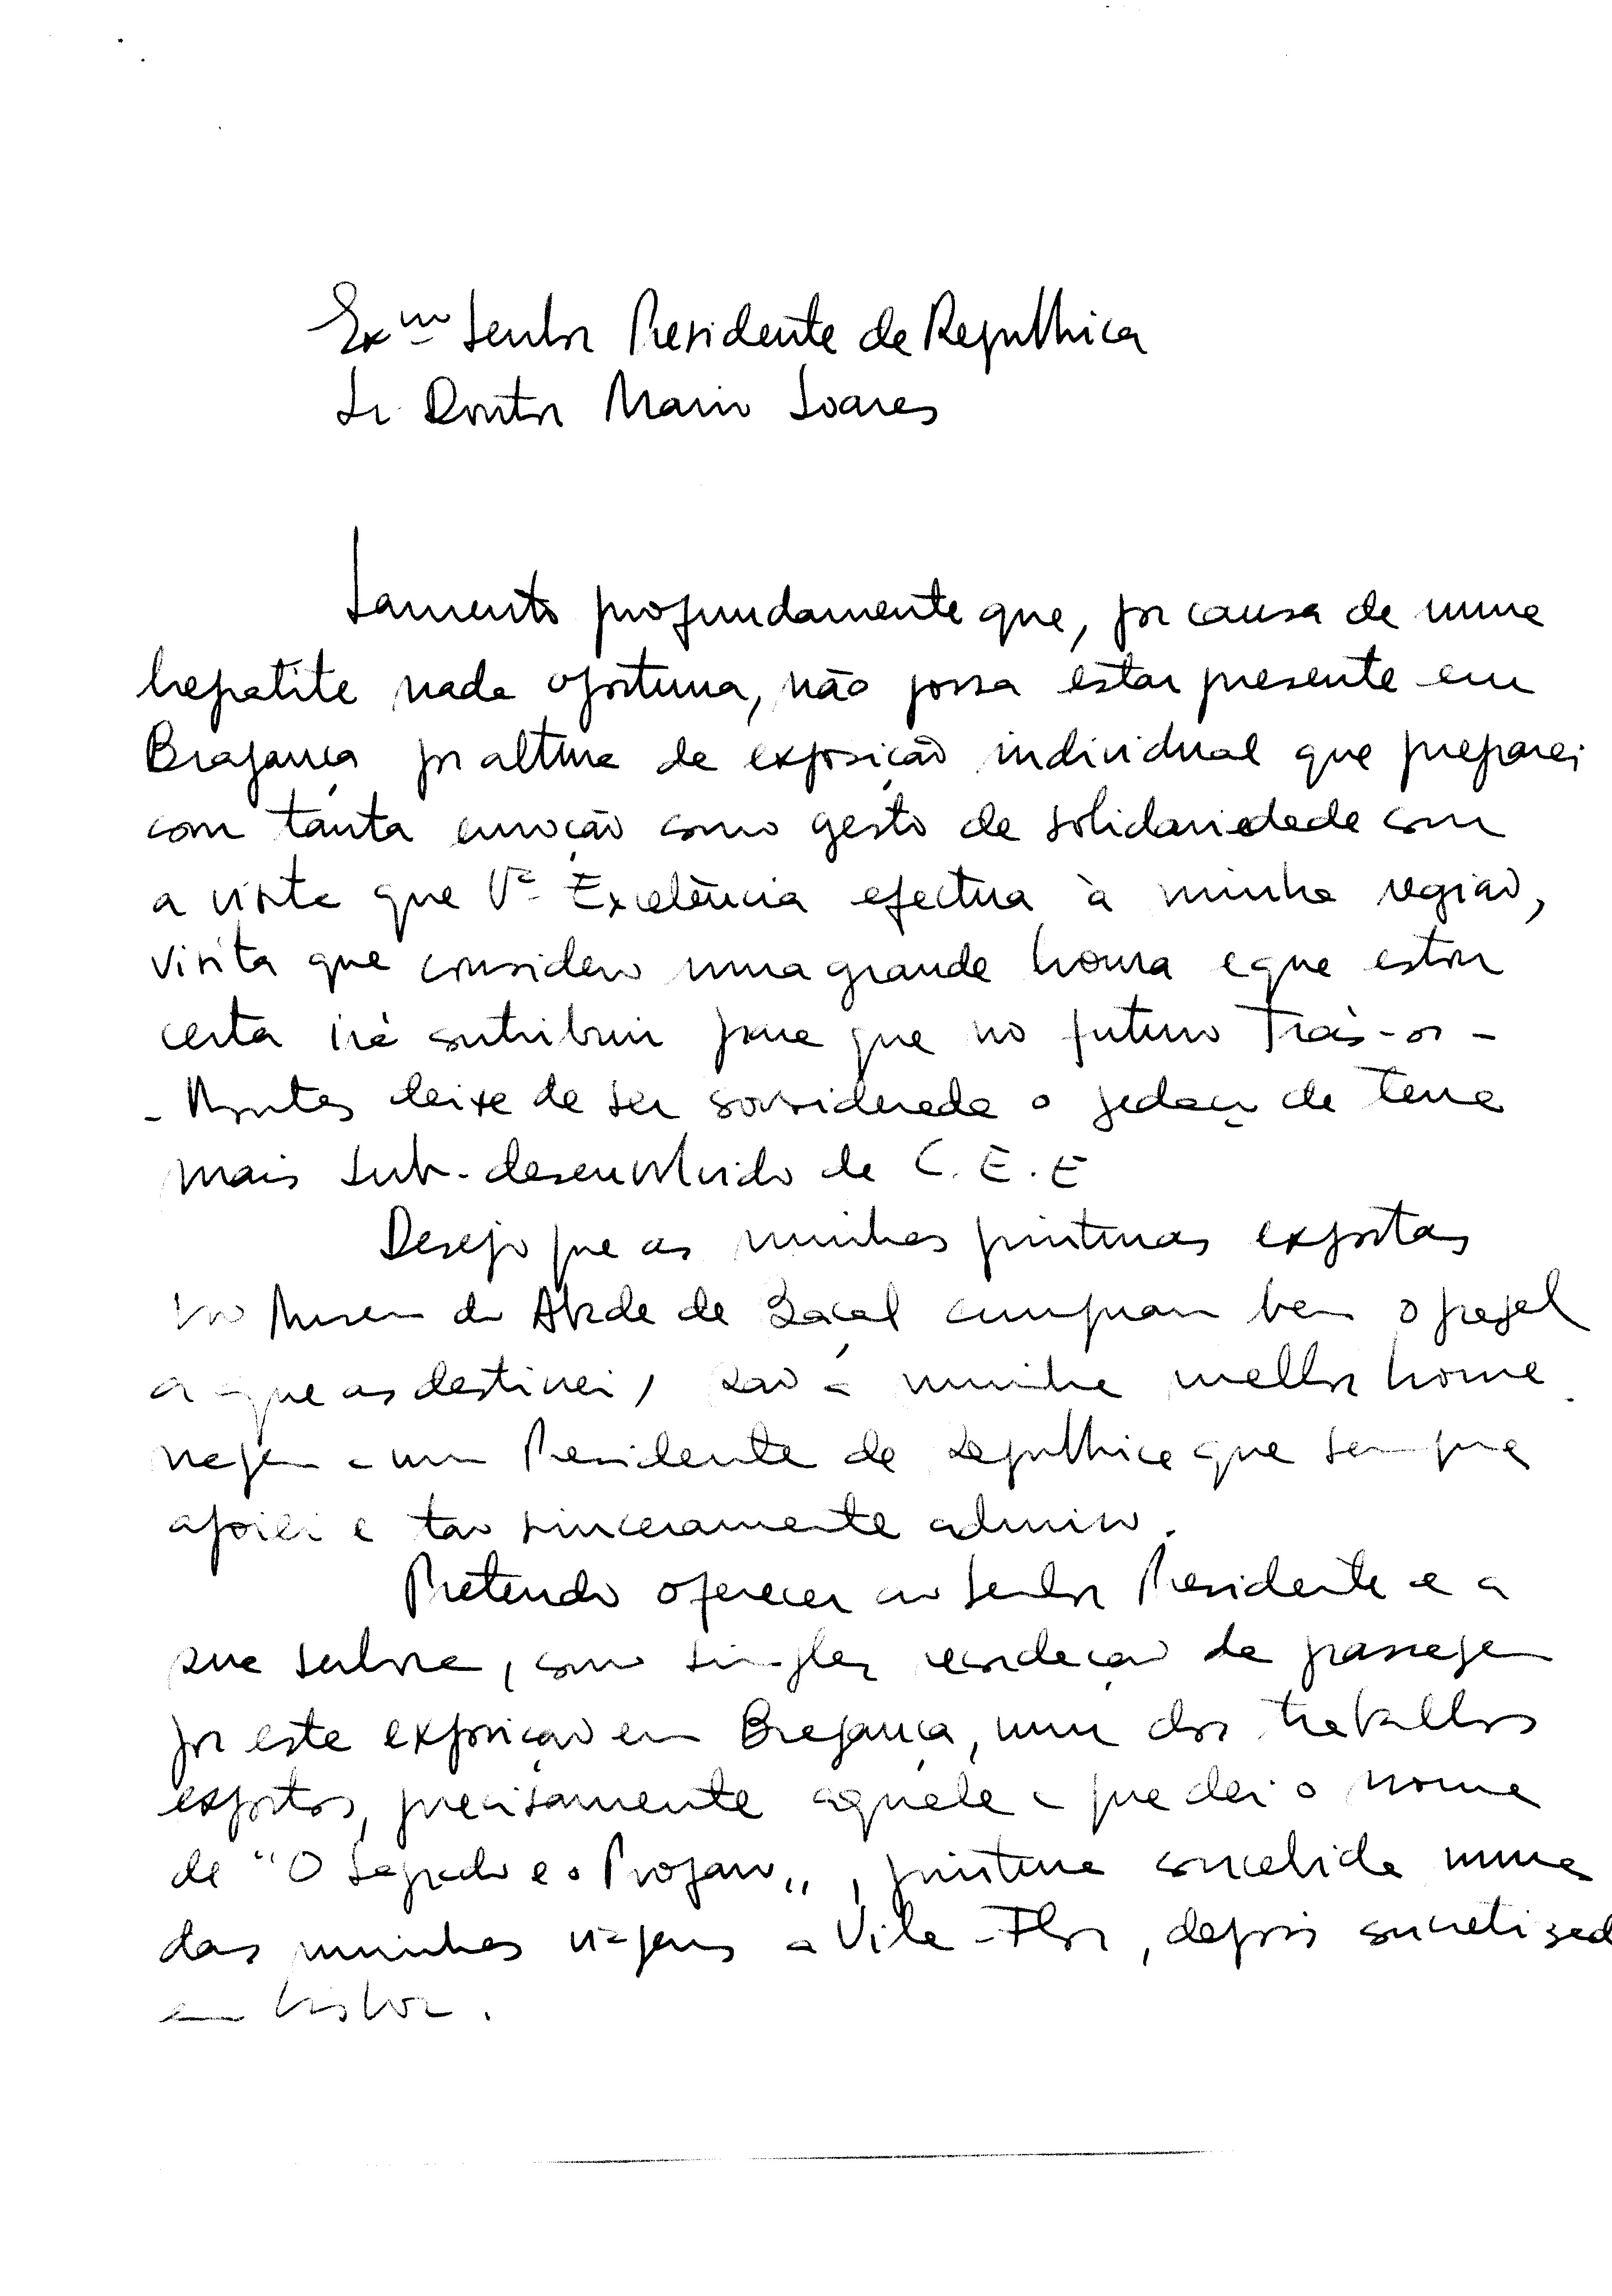 Exmo Senhor Presidente da Republica
Sr. Doutor Mario Soares
Lamento profundamente que, por causa de uma
hepatite nada oportuna, não possa estar presente em
Bragança por altura da exposição individual que preparei
com tanta emoção como gesto de solidariedade com
a visita que Vª Exelência efectua à minha região,
visita que considero uma grande honra e que estou
certa irá contribuir para que no futuro Trás-os-
-Montes deixe de ser considerada o pedaço de terra
mais sub-desenvolvido da C.E.E
Desejo que as minhas pinturas expostas
no Museu do Abade de Baçal cumpram bem o papel
a que as destinei, são a minha melhor home
nagem a um Presidente da Republica que sempre
apoiei e tão sinceramente admiro.
Pretendo oferecer ao Senhor Presidente e a
sua senhora, como simples recordação da passagem
por esta exposição em Bragança, um dos trabalhos
expostos, precisamente aquele a que dei o nome
de "O Sagrado e o Profano", pintura concebida numa
das minhas viagens a Vila-Flor, depois concretizad
em Lisboa.